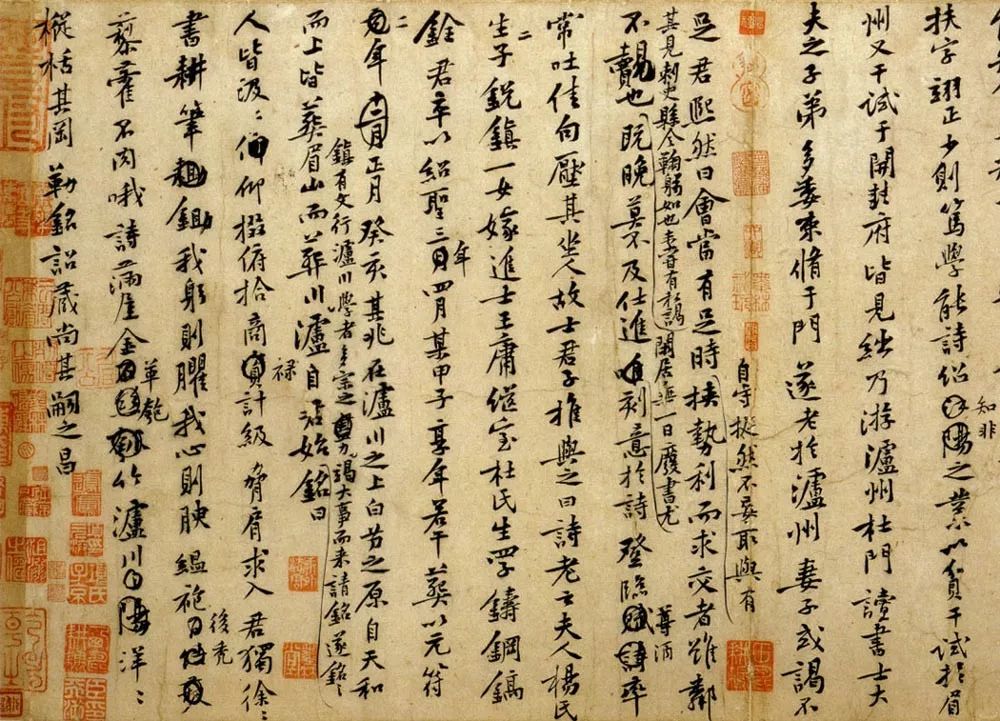 扶字翊正少則篤學能詩紹之業以貢干試於眉
知非
州又干試于開封府皆見絀乃游瀘州杜門讀書士大
夫之子弟多委束脩于門遂老於瀘州妻子或謁不
自守挺然不妄取與有
足君熙然曰會當有足時挾勢利而求交者雖鄰
其見刺史縣令鞠躬如也閑居無一日廢書尤
不覿也既晚莫不及仕進唯刻意於詩登臨率
尊酒
常吐佳句壓其坐人故士君子推與之曰詩老云夫人楊氏
生二子銳鎮一女嫁進士王庸繼室杜氏生四子鑄鋼鎬
銓君卒以紹聖三年四月某甲子享年若干葬以元符
二年正月癸亥其兆在瀘川之上白芀之原自天和
而上皆葬眉山而葬川瀘自始銘曰
鎮有文行瀘川學者多宗之力竭大事而来請銘遂銘之
人皆汲汲仰掇俯拾商計級脅肩求入君獨徐徐
祿
書耕筆耡我躬則臞我心則腴緼袍
後禿
藜藿不肉哦詩滿屋金竹瀘川洋洋
簞瓢
樅栝其岡勒銘詔藏尚其嗣之昌